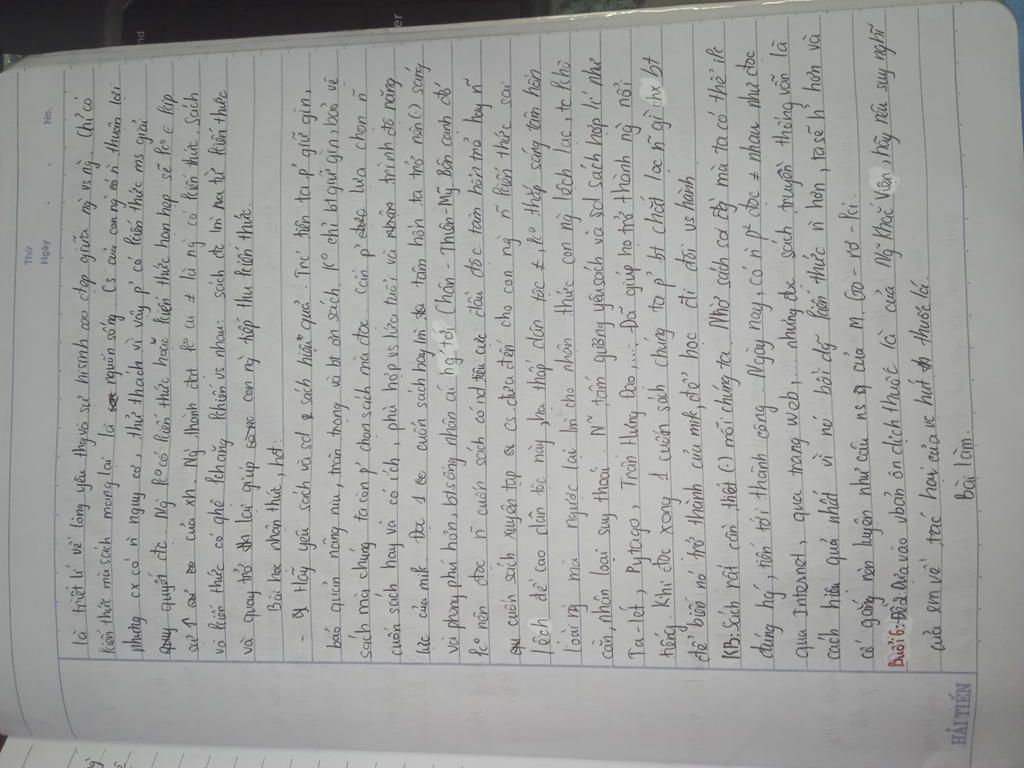 Thứ
Ngày
No.
là triết lí về lòng yêu thg và sự hi sinh cao đẹp giữa ng vs ng. Chỉ có
kiến thức mà sách mang lại là nguồn sống. Cs của con ng có n̄ thuận lợi
nhưng cx có n̄ nguy cơ, thử thách vì vậy p' có kiến thức ms giải
quyết đc. Ng k° có kiến thức hoặc kiến thức hạn hẹp sẽ k° kịp
sự của xh. Ng thành đạt k° ai ≠ là ng có kiến thức. Sách
và kiến thức có ghé kehang khiến vs nhau: sách đc in ra từ kiến thức
và quay trở lại giúp con ng tiếp thu kiến thức.
Bài học nhận thức, hđ:
- Hãy yêu sách và sd sách hiệu quả. Trc tiên ta p' giữ gìn,
bảo quản nâng niu, trân trọng và bt ơn sách. K° chỉ bt giữ gìn, bảo vệ
sách mà chúng ta còn p' chọn sách mà đọc. Cần p' lựa chọn n̄
cuốn sách hay và có ích, phù hợp vs lứa tuổi và trình độ năng
lực của mik. Đọc 1 cuốn sách hay tâm hồn ta trở nên (.) sáng
và phong phú hơn, bt sống nhân ái hg tới Chân - Thiện - Mỹ. Bên cạnh đó
k° nên đọc n̄ cuốn sách có nd tiêu cực đầu độc tâm hồn trẻ hay n̄
cuốn sách xuyên tạc cs đưa đến cho con ng n̄ kiến thức sai
lệch đề cao dân tộc này, hạ thấp dân tộc ≠. K° thắp sáng tâm hồn
loài ng mà ngược lại làm cho nhận thức con ng lệch lạc, te khô
cằn, nhân loại suy thoái. N~ tấm gương yêu sách và sd sách hợp lí như
Ta-lét, Pytago, Trần Hưng Đạo,... Đã giúp họ trở thành ng nổi
tiếng. Khi đọc xong 1 cuốn sách chúng ta p' bt chắt lọc n~ gì chx bt
để biến nó trở thành của mik, để học đi đôi vs hành
KB: Sách rất cần thiết (.) mỗi chúng ta. Nhờ sách mà ta có thể đi
đúng hg, tiến tới thành công. Ngày nay, có n̄ p² đọc ≠ nhau như đọc
qua Internet, qua trang web,... nhưng đọc sách truyền thống vẫn là
cách hiệu quả nhất vì nó bồi dg kiến thức n̄ hơn, ta sẽ h' hơn và
cố gắng rèn luyện như câu ns of của M. Go - rơ - ki.
Buổi 6: Đề: Dựa vào vbản ôn dịch thuốc lá của Ng Khắc Viện, hãy nêu suy nghĩ
của em về tác hại của vc hút thuốc lá.
Bài làm.
HẢI TIẾN